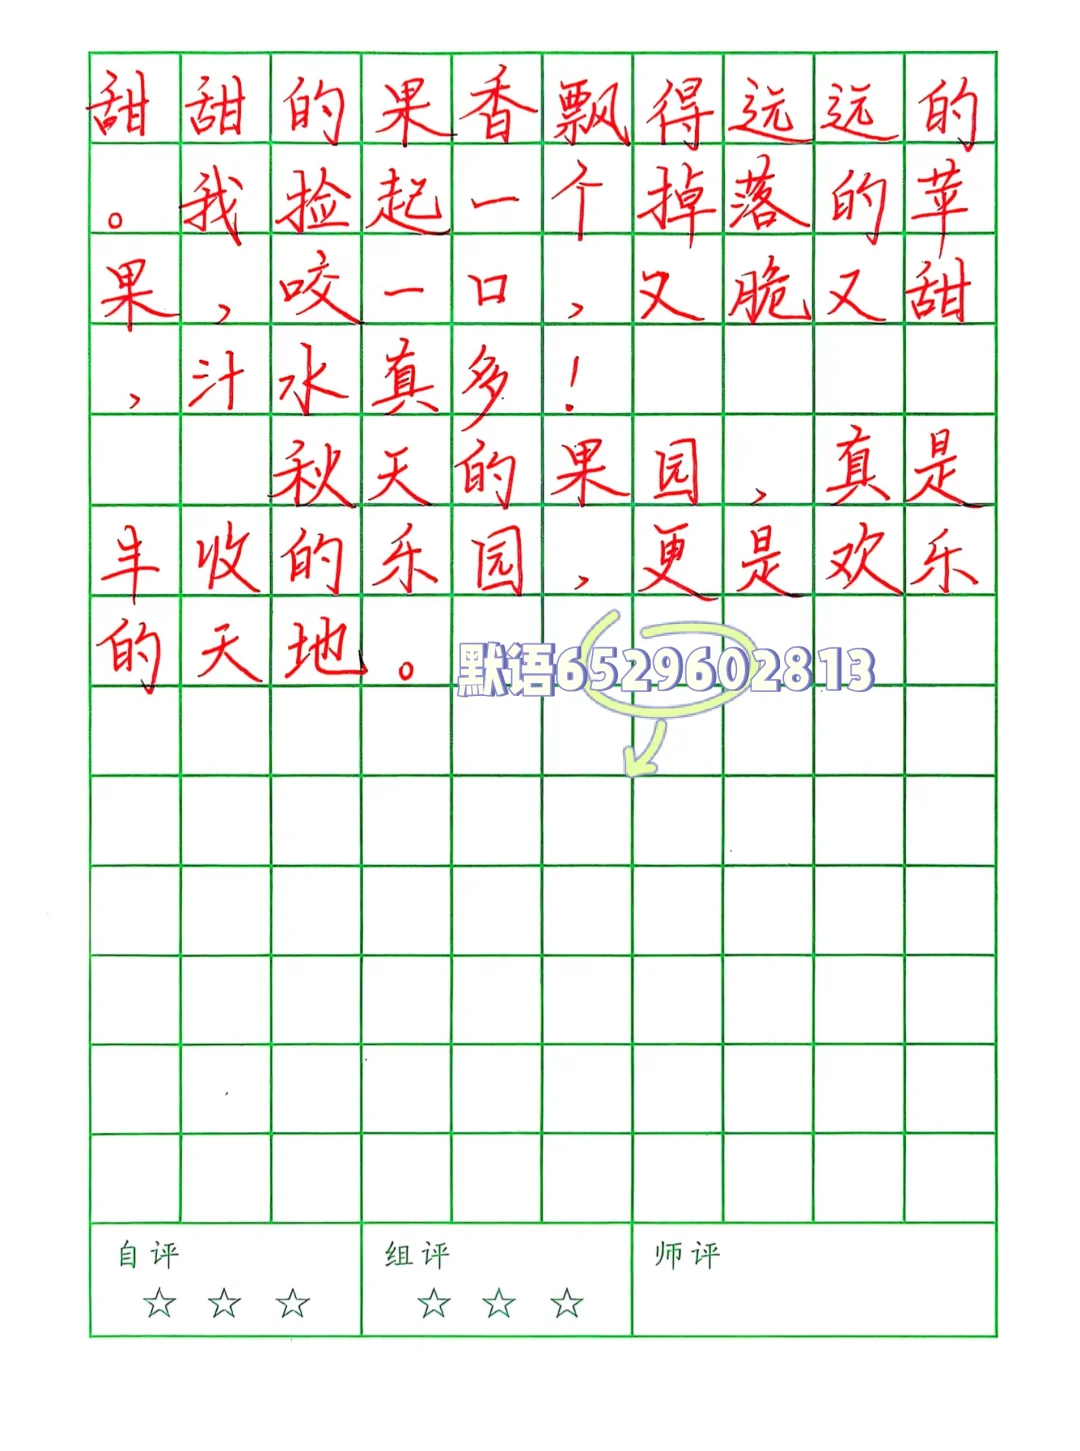 甜甜的果香飘得远远的
。我捡起一个掉落的苹
果，咬一口，又脆又甜
，汁水真多！
秋天的果园，真是
丰收的乐园，更是欢乐
的天地。
默语6529602813
自评 组评 师评
☆ ☆ ☆ ☆ ☆ ☆